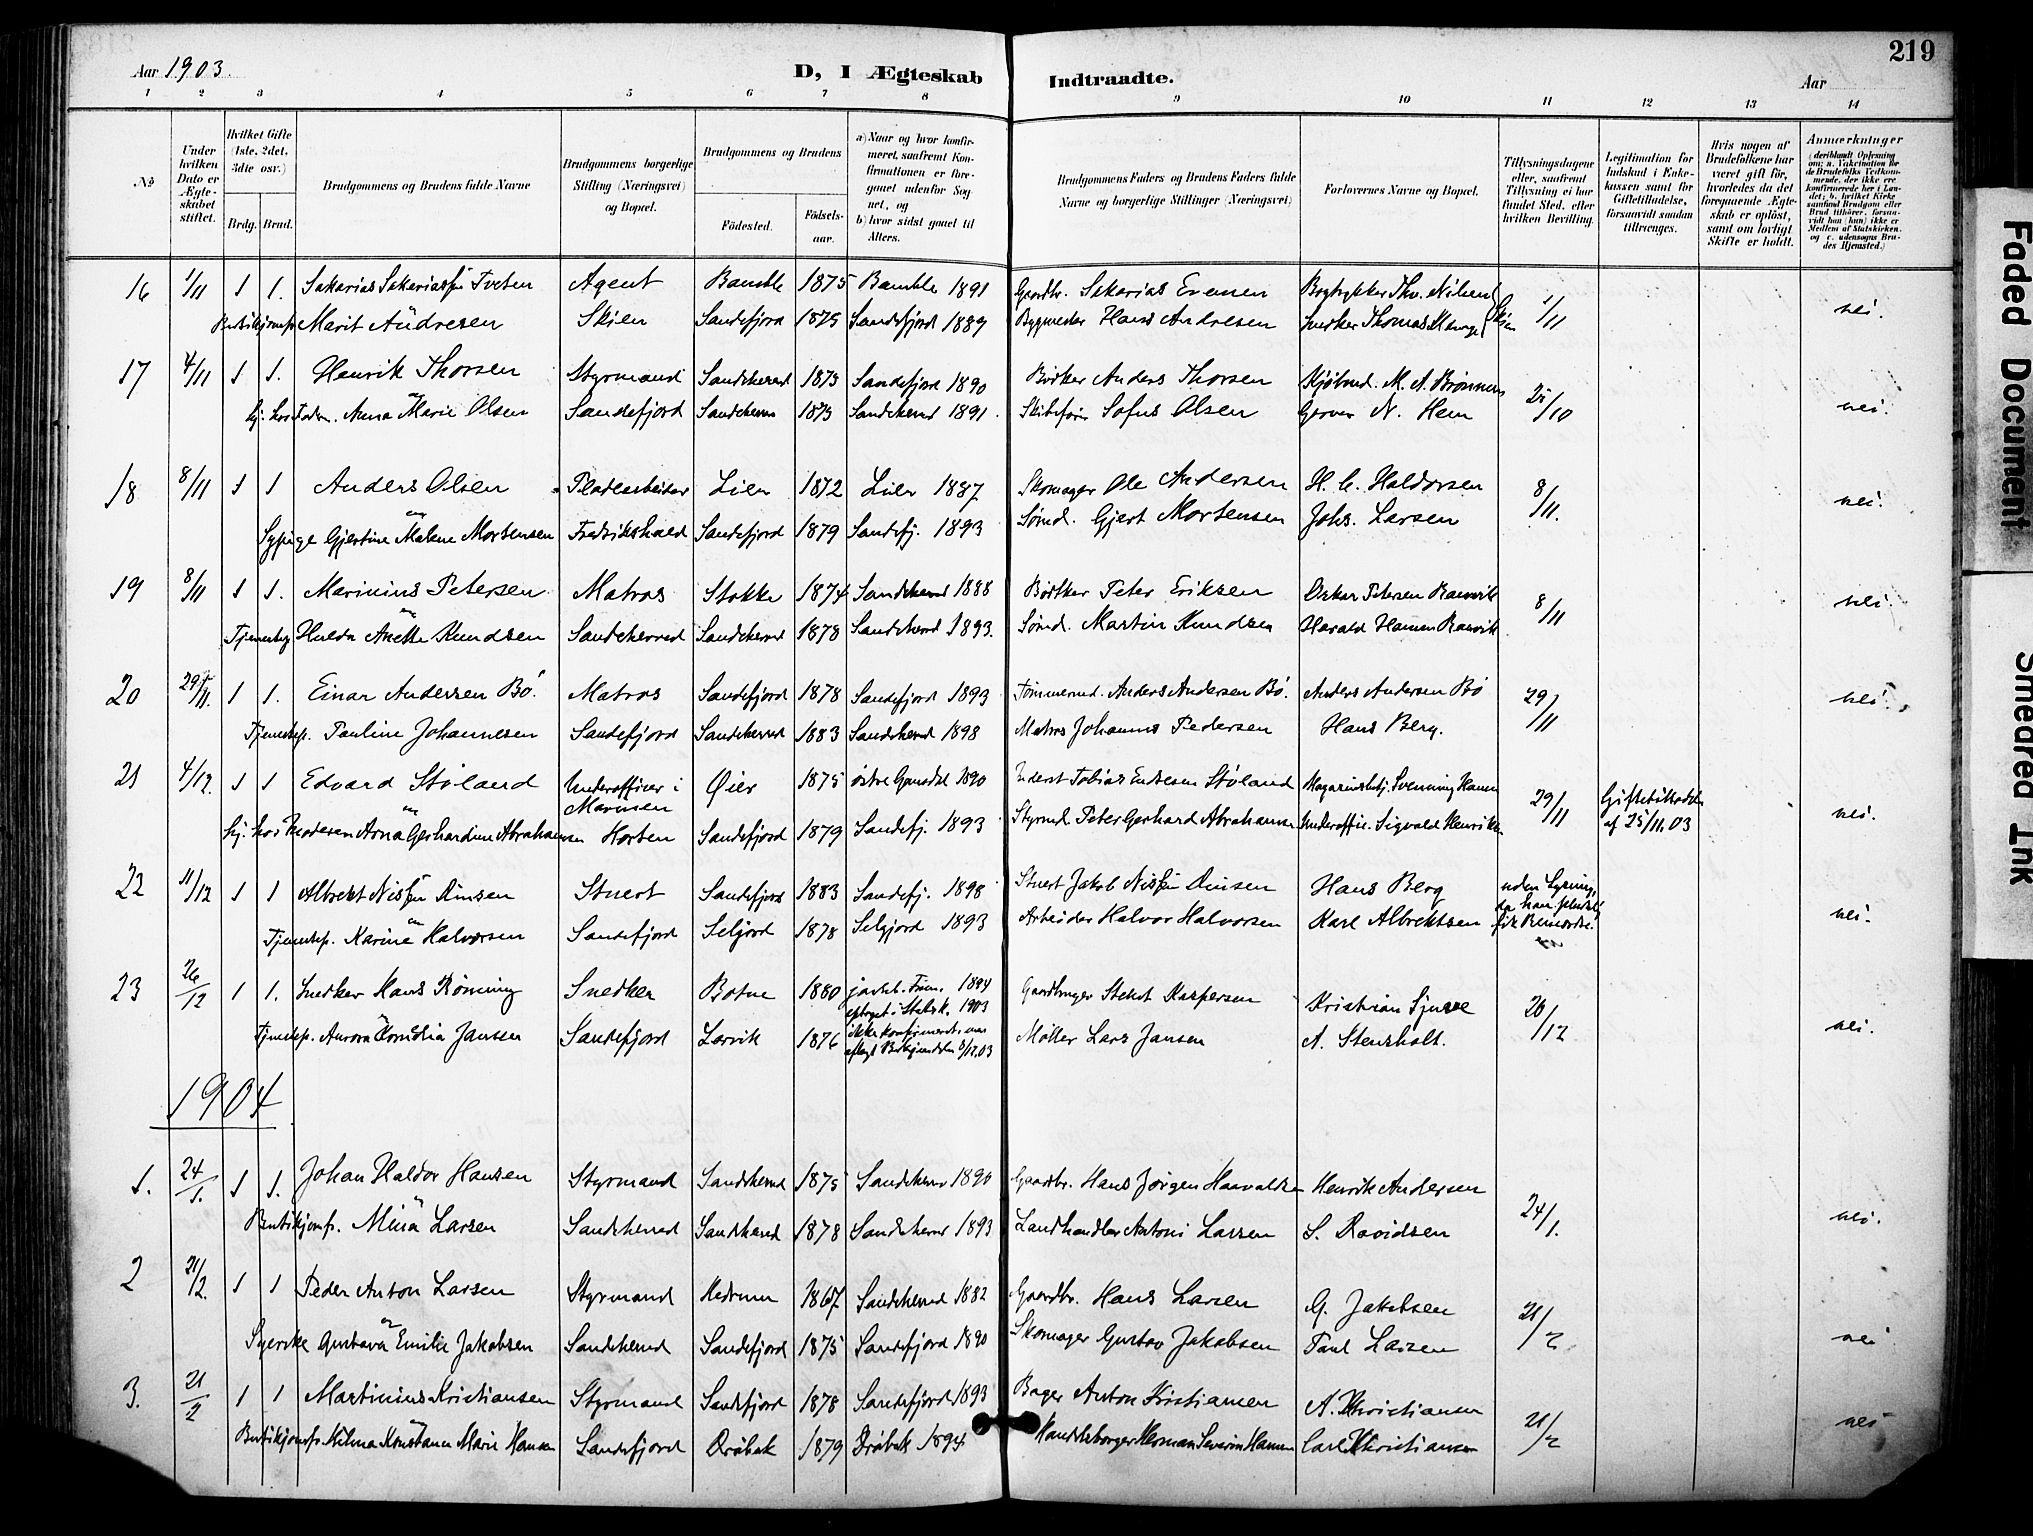 219
Aar 1903.
D, I Ægteskab Indtraadte.
Aar
1 2 3 4 5 6 7 8 9 10 11 12 13 14
No
Under hvilken Dato er Ægteskabet stiftet.
Hvilket Gifte (1ste, 2det, 3die osv.)
Brdg. Brud.
Brudgommens og Brudens fulde Navne
Brudgommens borgerlige Stilling (Næringsvei) og Bopæl.
Brudgommens og Brudens
Födested.
Födselsaar.
a) Naar og hvor konfirmeret, saafremt Konfirmationen er foregaaet udenfor Sognet, og
b) hvor sidst gaaet til Alters.
Brudgommens Faders og Brudens Faders fulde Navne og borgerlige Stillinger (Næringsvei)
Forlovernes Navne og Bopæl.
Tillysningsdagene eller, saafremt Tillysning ei har fundet Sted, efter hvilken Bevilling.
Legitimation for Indskud i Enkekassen samt for Giftetilladelse, forsaavidt saadan tiltrænges.
Hvis nogen af Brudefolkene har været gift för, hvorledes da det foregaaende Ægteskab er oplöst, samt om lovligt Skifte er holdt.
Anmærkninger
(deriblandt Oplysning om: a. Vakcination for de Brudefolks Vedkommende, der ikke ere konfirmerede her i Landet; b. hvilket Kirkesamfund Brudgom eller Brud tilhörer, forsaavidt han (hun) ikke er Medlem af Statskirken, og c. udensogns Brudes Hjemsted.)
16 1/11 1 1. Sakarias Sakariassøn Tveten Agent Bamble 1875 Bamble 1891 Gaardbr. Sakarias Evensen Bogtrykker Thv. Nilsen 1/11 nei.
Marit Andresen Skien Sandefjord 1875 Sandefjord 1889 Bygmester Hans Andresen Snedker Thomas Skien
17 4/11 1 1. Henrik Thorsen Styrmand Sandeherred 1873 Sandefjord 1890 Bødker Anders Thorsen Kjøbmd. M. A. 25/10 nei.
hj. hos Faderen. Anna Marie Olsen Sandefjord Sandeherred 1873 Sandeherred 1891. Skibsfører Sofus Olsen Garver N. Hem
18 8/11 1 1 Anders Olsen Pladearbeider Lier 1872 Lier 1887 Skomager Ole Andersen H. C. Haldorsen 8/11. nei.
Sypige Gjertine Malene Mortensen Fredrikshald Sandefjord 1879 Sandefj. 1893 Sømd. Gjert Mortensen Johs. Larsen
19 8/11 1 1. Marinius Petersen Matros Stokke 1874 Sandeherred 1888 Bødker Peter Eriksen Oskar Petersen Ranvik 8/11 nei.
Hulda Anette Knudsen Sandeherred Sandeherred 1878 Sandeherred 1893. Sømd. Martin Knudsen Harald Hansen Ranvik
20 29/11. 1 1. Einar Andersen Bø. Matros Sandefjord 1878 Sandefjord 1893 Tømmermd. Anders Andersen Bø. Anders Andersen Bø 29/11 nei.
Tjenestep. Pauline Johannesen Sandefjord Sandeherred 1883 Sandeherred 1898 Matros Johannes Pedersen Hans Berg.
21 4/12. 1 1 Edvard Støland Underofficer i Marinen Øier 1875 østre 1890 Tobias Støland Svenning Hansen 29/11 Giftetilladelse af 25/11.03 nei.
hj. hos Moderen Anna Gerhardine Abrahamsen Horten Sandefjord 1879 Sandefj. 1893 Styrmd. Peter Gerhard Abrahamsen Underoffic. Sigvald Henriksen
22 11/12 1 1 Albrekt Nissøn Stuert Sandefjord 1883 Sandefj. 1898 Stuert Jakob Nissøn Hans Berg uden Lysning, da han fik nei.
Tjenestep. Karine Halvorsen Sandefjord Seljord 1878 Seljord 1893 Arbeider Halvor Halvorsen Karl Albrektsen
23 26/12 1 1. Snedker Hans Rønning Snedker Botne 1880 1894 optaget i Statsk. 1903 Gaardbruger Kaspersen Kristian 26/12 nei.
Tjenestep. Aurora Cornelia Jansen Sandefjord Larvik 1876 ikke konfirmeret, 3/12.03 Møller Lars Jansen A. Stensholt.
1904
1. 24/1. 1 1. Johan Haldor Hansen Styrmand Sandeherred 1875 Sandeherred 1890 Gaardbr. Hans Jørgen Haavaldsen Henrik Andersen 24/1. nei.
Butikjomfr. Mina Larsen Sandeherred Sandeherred 1878 Sandeherred 1893 Landhandler Antoni Larsen S. Davidsen
2 21/2. 1 1 Peder Anton Larsen Styrmand Hedrum 1867 Sandeherred 1882 Gaardbr. Hans Larsen G. Jakobsen 21/2 nei
Syerske Gustava Emilie Jakobsen Sandeherred Sandefjord 1875 Sandefjord 1890 Skomager Gustav Jakobsen Paul Larsen
3. 21/2 1 1 Martinius Kristiansen Styrmand Sandefjord 1878 Sandefjord 1893 Bager Anton Kristiansen A. Christiansen 21/2 nei
Butikjomfr. Milma Konstance Marie Hansen Sandefjord Drøbak 1879 Drøbak 1894 Handelsborger Herman Severin Hansen Carl Christiansen
Faded Document
Smedred Ink